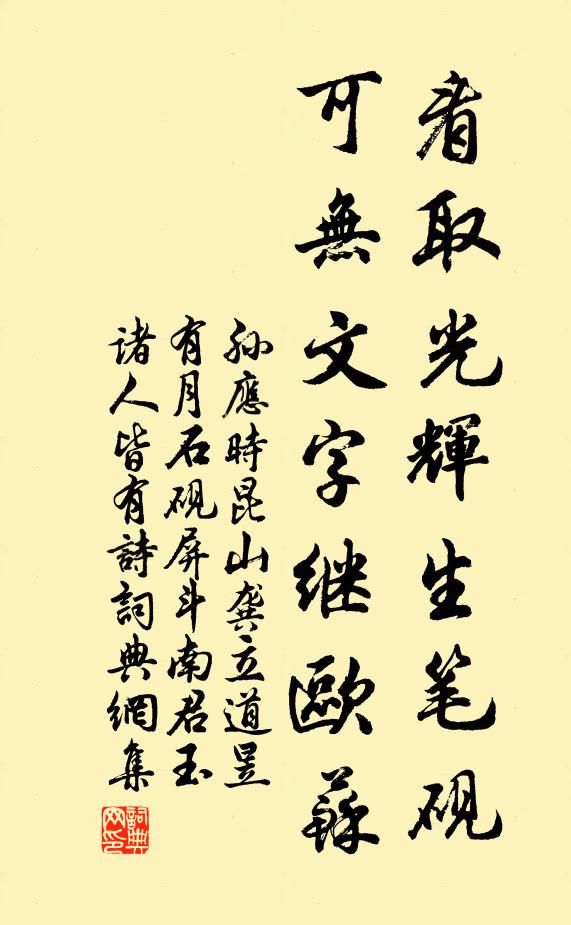 看取光輝生笔砚
可無文字继歐蘇
孙應時昆山龚立道昱
有月石砚屏斗南君玉
诸人皆有詩詞典網集
詞典
网印